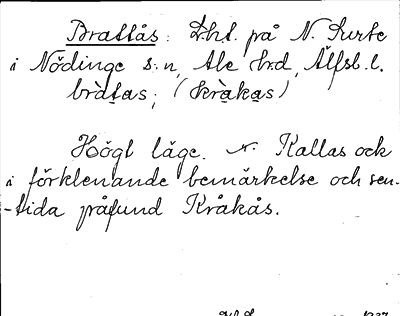 Brattås: Lht. på N. Surte
i Nödinge s:n, Ale hd, Älfsb. l.
bràtas; (kràkas)
Högt läge. N. Kallas ock
i förklenande bemärkelse och sen-
-tida påfund Kråkås.